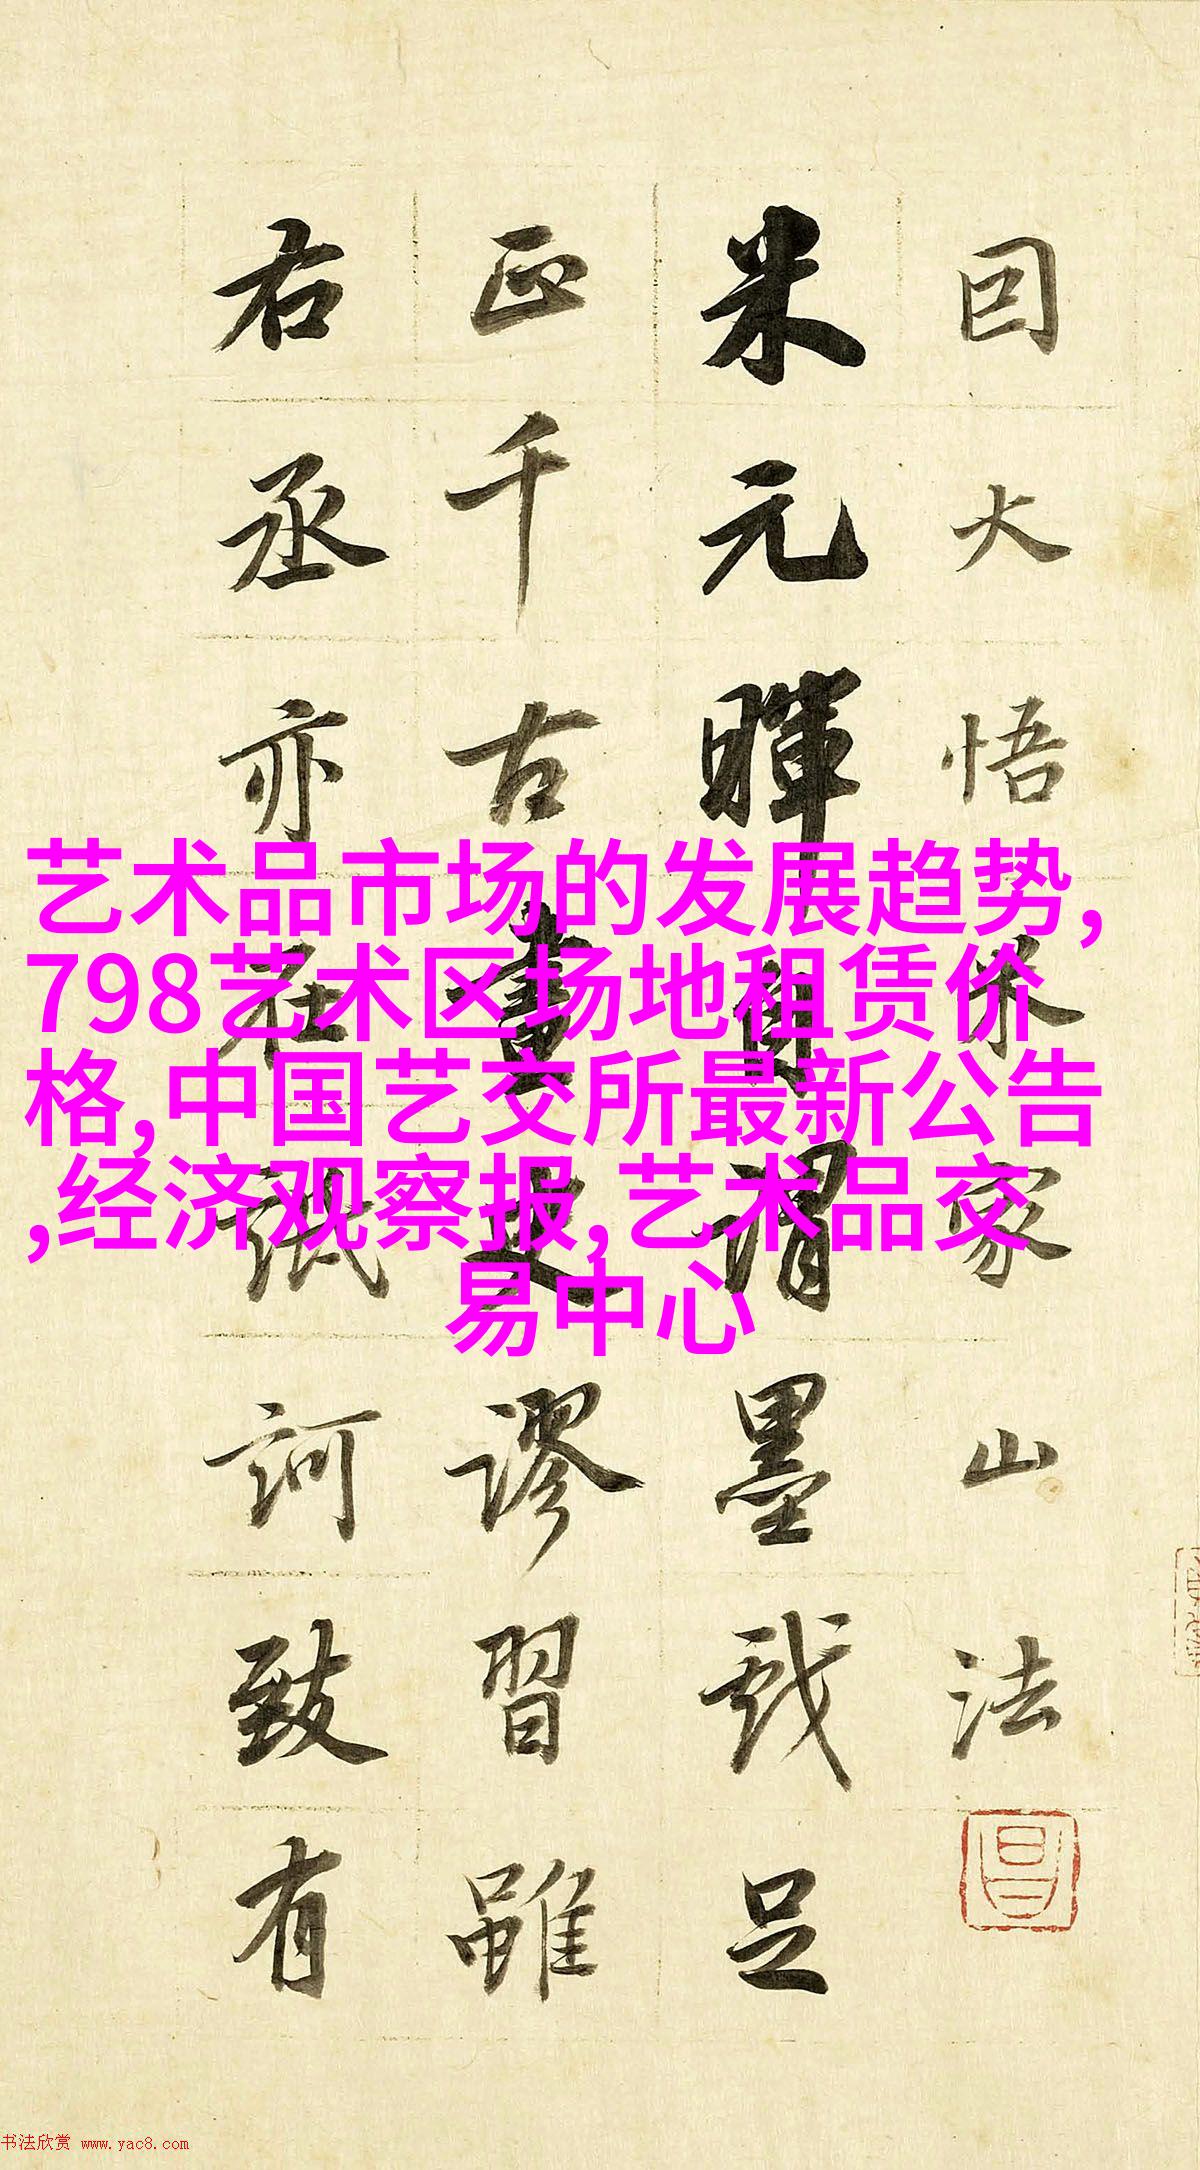 囙大悟米家山法
米元暉自謂墨戲足
正千古畫史謬習雖
右丞亦在詆訶致有
昌
艺术品市场的发展趋势,
798艺术区场地租赁价
格,中国艺交所最新公告
,经济观察报,艺术品交
易中心
书法欣赏 www.yac8.com